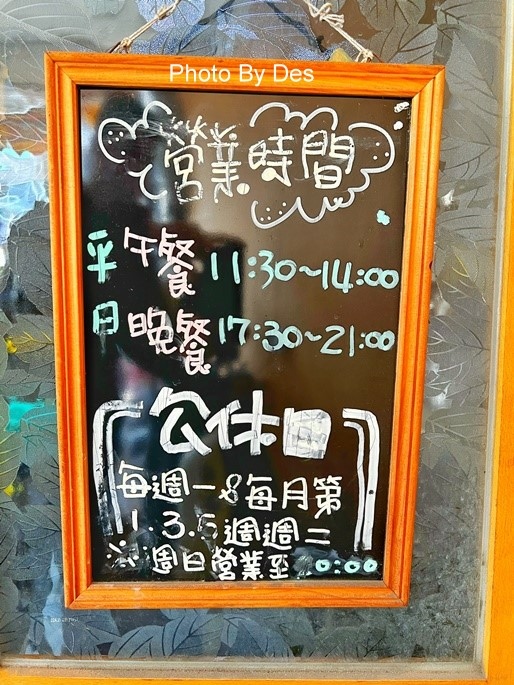 Photo By Des
營業時間
平日
午餐 11:30~14:00
晚餐 17:30~21:00
公休日
每週一&每月第
1.3.5週週二
※週日營業至 0:00